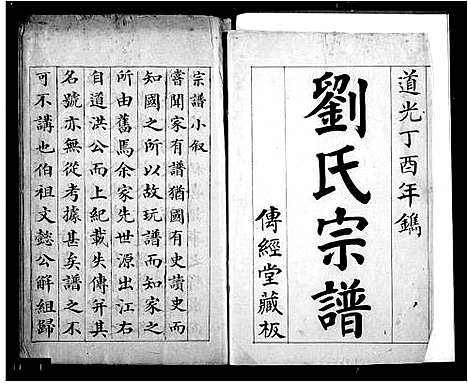 道光丁酉年鐫
劉氏宗譜
傳經堂藏板
宗譜小叙
嘗聞家有譜猶國有史讀史而
知國之所以故玩譜而知家之
所由舊焉余家先世源出江右
自道洪公而上紀載失傳幷其
名號亦無從考據甚矣譜之不
可不講也伯祖文懿公解組歸